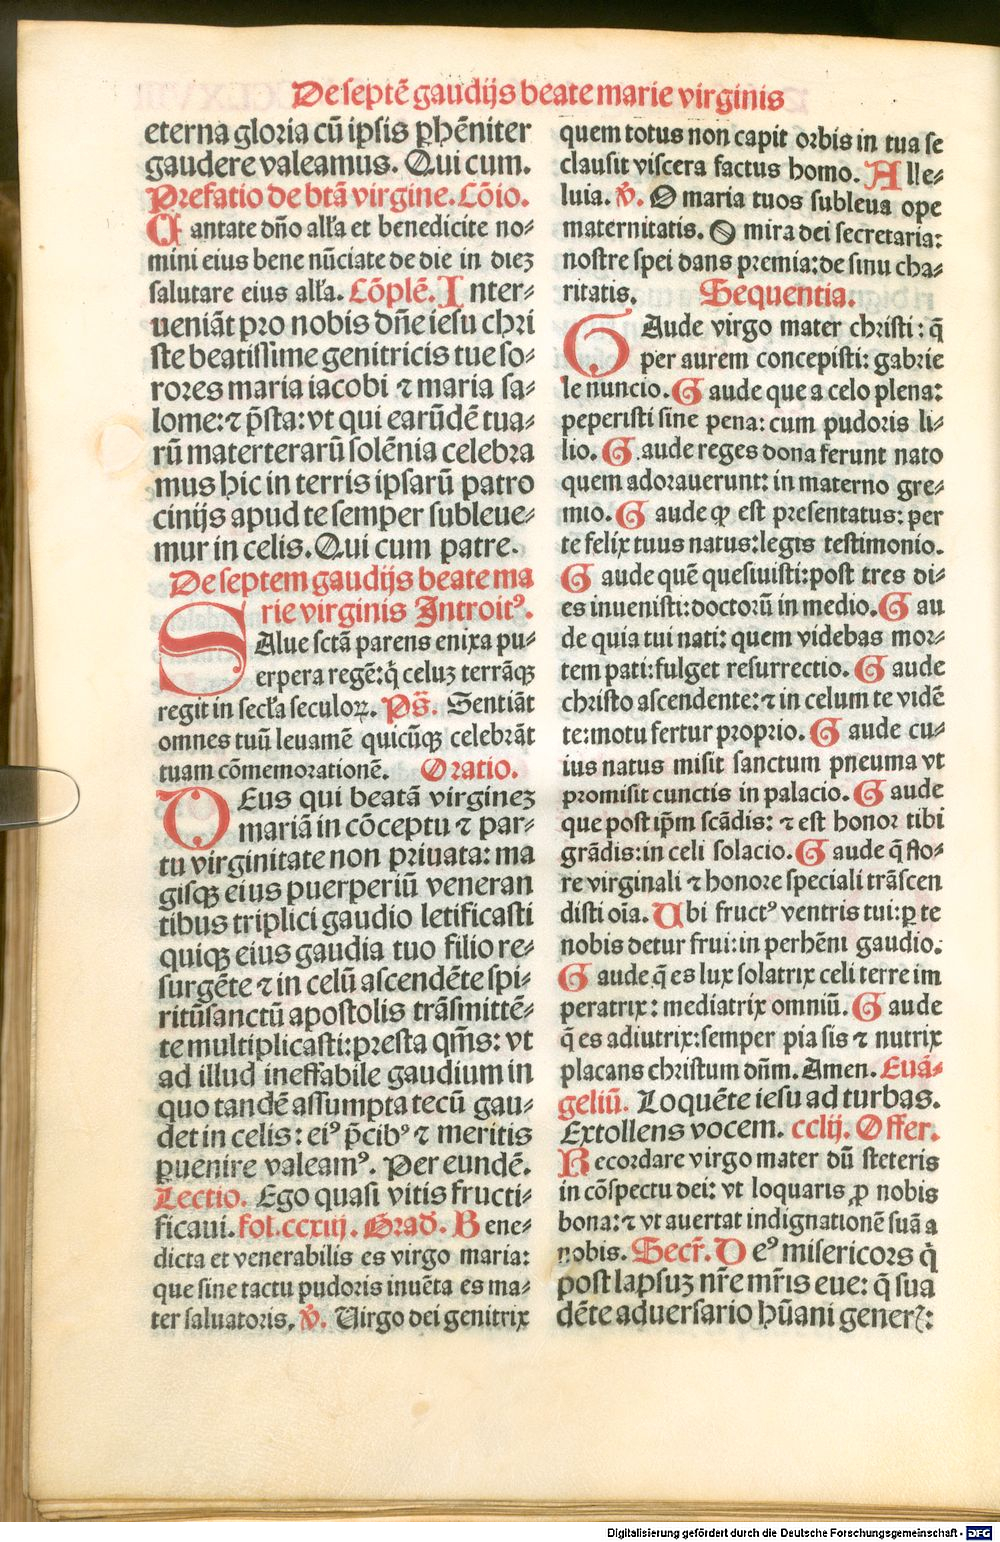 De septē gaudijs beate marie virginis
eterna gloria cū ipsis ꝑhēniter
gaudere valeamus. Qui cum.
Prefatio de btā virgine. Cōio.
Cantate dño alľa et benedicite no⸗
mini eius bene nūciate de die in dieꝫ
salutare eius alľa. Cōplē. Inter⸗
ueniāt pro nobis dñe iesu chri
ste beatissime genitricis tue so⸗
rores maria iacobi ⁊ maria sa⸗
lome:⁊ p̄sta: vt qui earūdē tua⸗
rū materterarū solēnia celebra
mus hic in terris ipsarū patro
cinijs apud te semper subleue⸗
mur in celis. Qui cum patre.
De septem gaudijs beate ma
rie virginis Introitꝰ.
SAlue sctā parens enixa pu⸗
erpera regē:q̇ celuꝫ terrāqꝫ
regit in secľa seculoꝝ. Ps̄. Sentiāt
omnes tuū leuamē quicūqꝫ celebrāt
tuam cōmemorationē. Oratio.
DEus qui beatā virgineꝫ
mariā in cōceptu ⁊ par⸗
tu virginitate non priuata: ma
gisqꝫ eius puerperiū veneran
tibus triplici gaudio letificasti
quiqꝫ eius gaudia tuo filio re⸗
surgēte ⁊ in celū ascendēte spi⸗
ritūsanctū apostolis trāsmittē⸗
te multiplicasti:presta qm̄s: vt
ad illud ineffabile gaudium in
quo tandē assumpta tecū gau⸗
det in celis: eiꝰ p̄cibꝰ ⁊ meritis
puenire valeamꝰ. Per eundē.
Lectio. Ego quasi vitis fructi⸗
ficaui. fol. ccxiij. Grad̄. Bene⸗
dicta et venerabilis es virgo maria:
que sine tactu pudoris inuēta es ma⸗
ter saluatoris. ℣. Uirgo dei genitrix
quem totus non capit orbis in tua se
clausit viscera factus homo. Alle⸗
luia. ℣. O maria tuos subleua ope
maternitatis. O mira dei secretaria:
nostre spei dans premia:de sinu cha⸗
ritatis. Sequentia.
GAude virgo mater christi: q̄
per aurem concepisti: gabrie
le nuncio. Gaude que a celo plena:
peperisti sine pena: cum pudoris li⸗
lio. Gaude reges dona ferunt nato
quem adorauerunt: in materno gre⸗
mio. Gaude ꝙ est presentatus: per
te felix tuus natus:legis testimonio.
Gaude quē quesiuisti:post tres di⸗
es inuenisti:doctorū in medio. Gau
de quia tui nati: quem videbas mor⸗
tem pati:fulget resurrectio. Gaude
christo ascendente:⁊ in celum te vidē
te:motu fertur proprio. Gaude cu⸗
ius natus misit sanctum pneuma vt
promisit cunctis in palacio. Gaude
que post ip̄m scādis: ⁊ est honor tibi
grādis:in celi solacio. Gaude q̄ flo⸗
re virginali ⁊ honore speciali trāscen
disti oīa. Ubi fructꝰ ventris tui:ꝑ te
nobis detur frui:in perhēni gaudio.
Gaude q̄ es lux solatrix celi terre im
peratrix: mediatrix omniū. Gaude
q̄ es adiutrix:semper pia sis ⁊ nutrix
placans christum dñm. Amen. Euā⸗
geliū. Loquēte iesu ad turbas.
Extollens vocem. cclij. Offer.
Recordare virgo mater dū steteris
in cōspectu dei: vt loquaris ꝓ nobis
bona:⁊ vt auertat indignationē suā a
nobis. Secr̄. Deꝰ misericors q̇
post lapsuꝫ nr̄e mr̄is eue: q̄ sua
dēte aduersario hūani generꝭ:
Digitalisierung gefördert durch die Deutsche Forschungsgemeinschaft - DFG